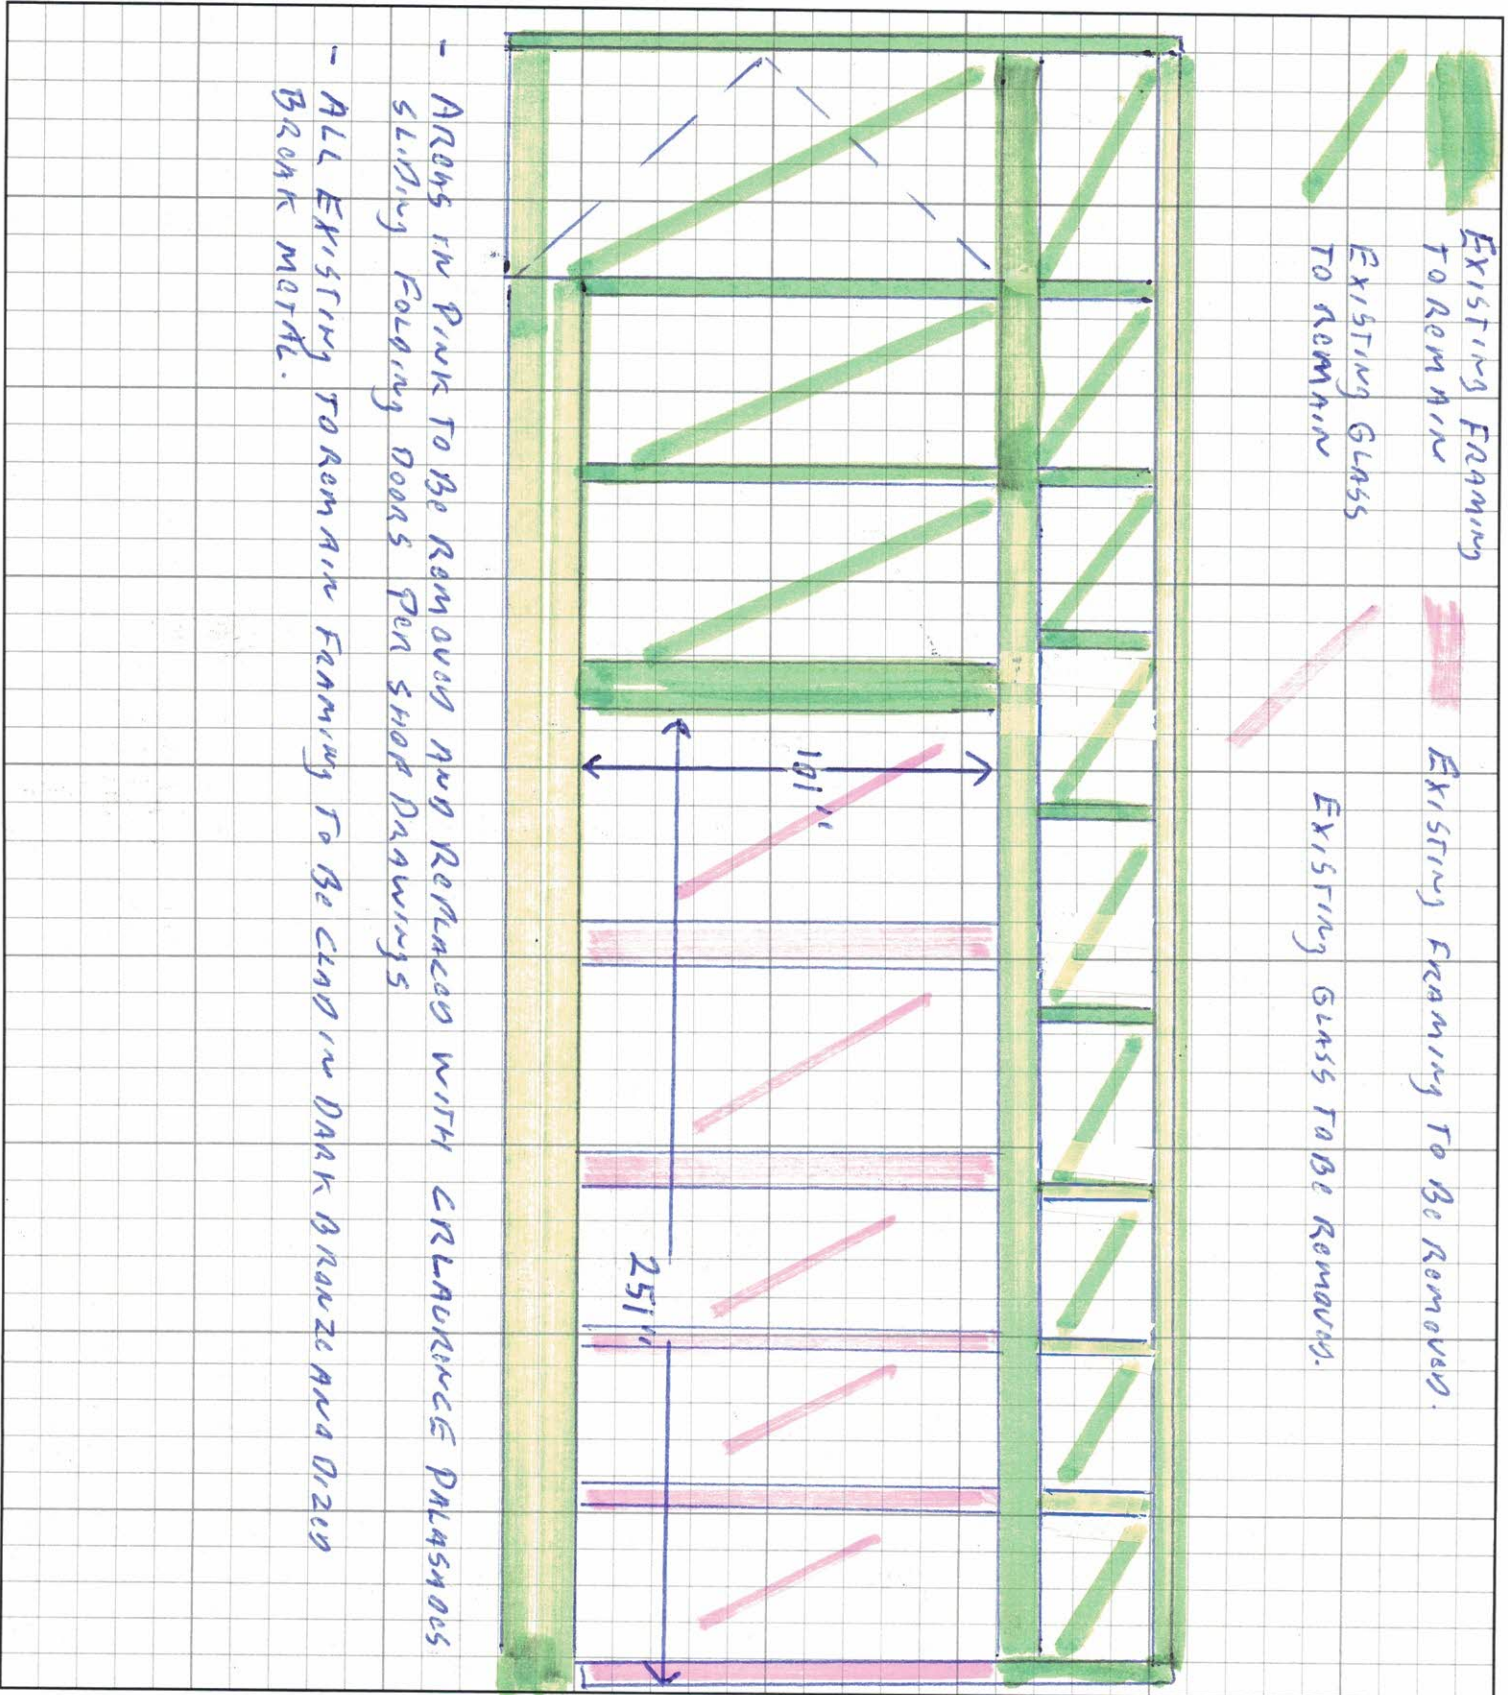 EXISTING FRAMING
TO REMAIN
EXISTING GLASS
TO REMAIN
EXISTING FRAMING TO BE REMOVED.
EXISTING GLASS TO BE REMOVED.
101"
251"
- AREAS IN PINK TO BE REMOVED AND REPLACED WITH CRLAURENCE PALASADES
SLIDING FOLDING DOORS PER SHOP DRAWINGS
- ALL EXISTING TO REMAIN FRAMING TO BE CLAD IN DARK BRONZE ANODIZED
BREAK METAL.